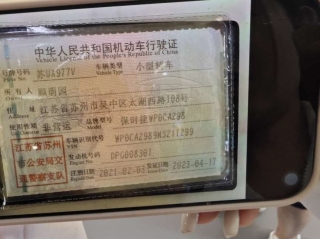 中华人民共和国机动车行驶证
Vehicle License of the People's Republic of China
号牌号码 苏UA977V 车辆类型 小型轿车
Plate No. Vehicle Type
所有人
住址 江苏省苏州市吴中区太湖西路188号
使用性质 非营运 品牌型号 保时捷WP0CA298
江苏省苏州市公安局交通警察支队
车辆识别代号 WP0CA2989NS211299
VIN
发动机号码 DPC008301
注册日期 2021-02-03 发证日期 2023-04-17